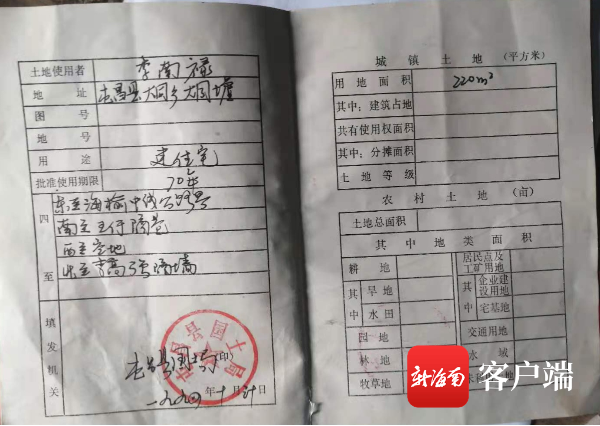 土地使用者 李南禄
地址 屯昌县大同乡大同墟
图号
地号
用途 建住宅
批准使用期限 70年
四至
东至海榆中线公路界
南至王行隔巷
西至空地
北至 高强隔墙
填发机关
屯昌县国土局(印)
一九九四年十月 日
城镇土地 (平方米)
用地面积 220m²
其中:建筑占地
共有使用权面积
其中:分摊面积
土地等级
农村土地 (亩)
土地总面积
其中地类面积
耕地 居民点及工矿用地
其中 旱地 其中 企业建设用地
水田 宅基地
园地 交通用地
林地 水域
牧草地
新海南 客户端